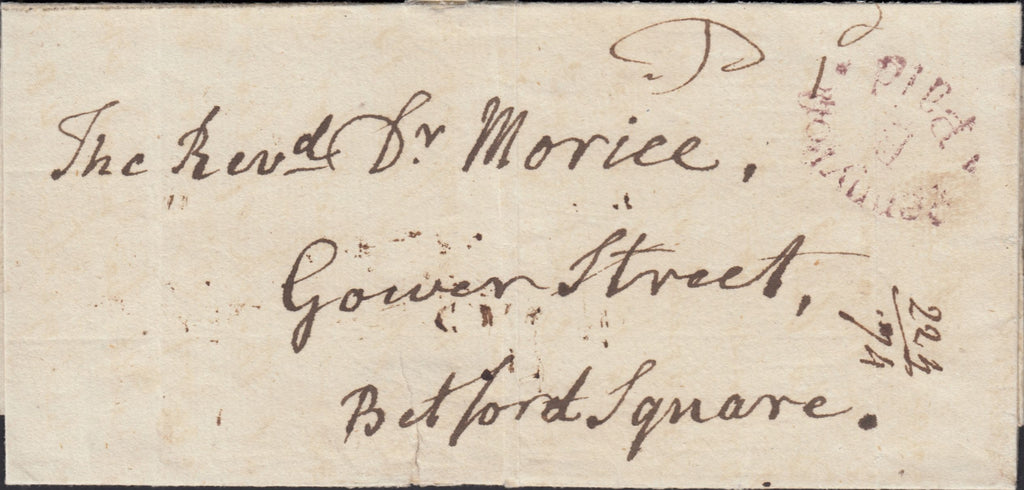 The Revd Dr Morice,
Gower Street,
Betford Square.
Paid
22 1/2